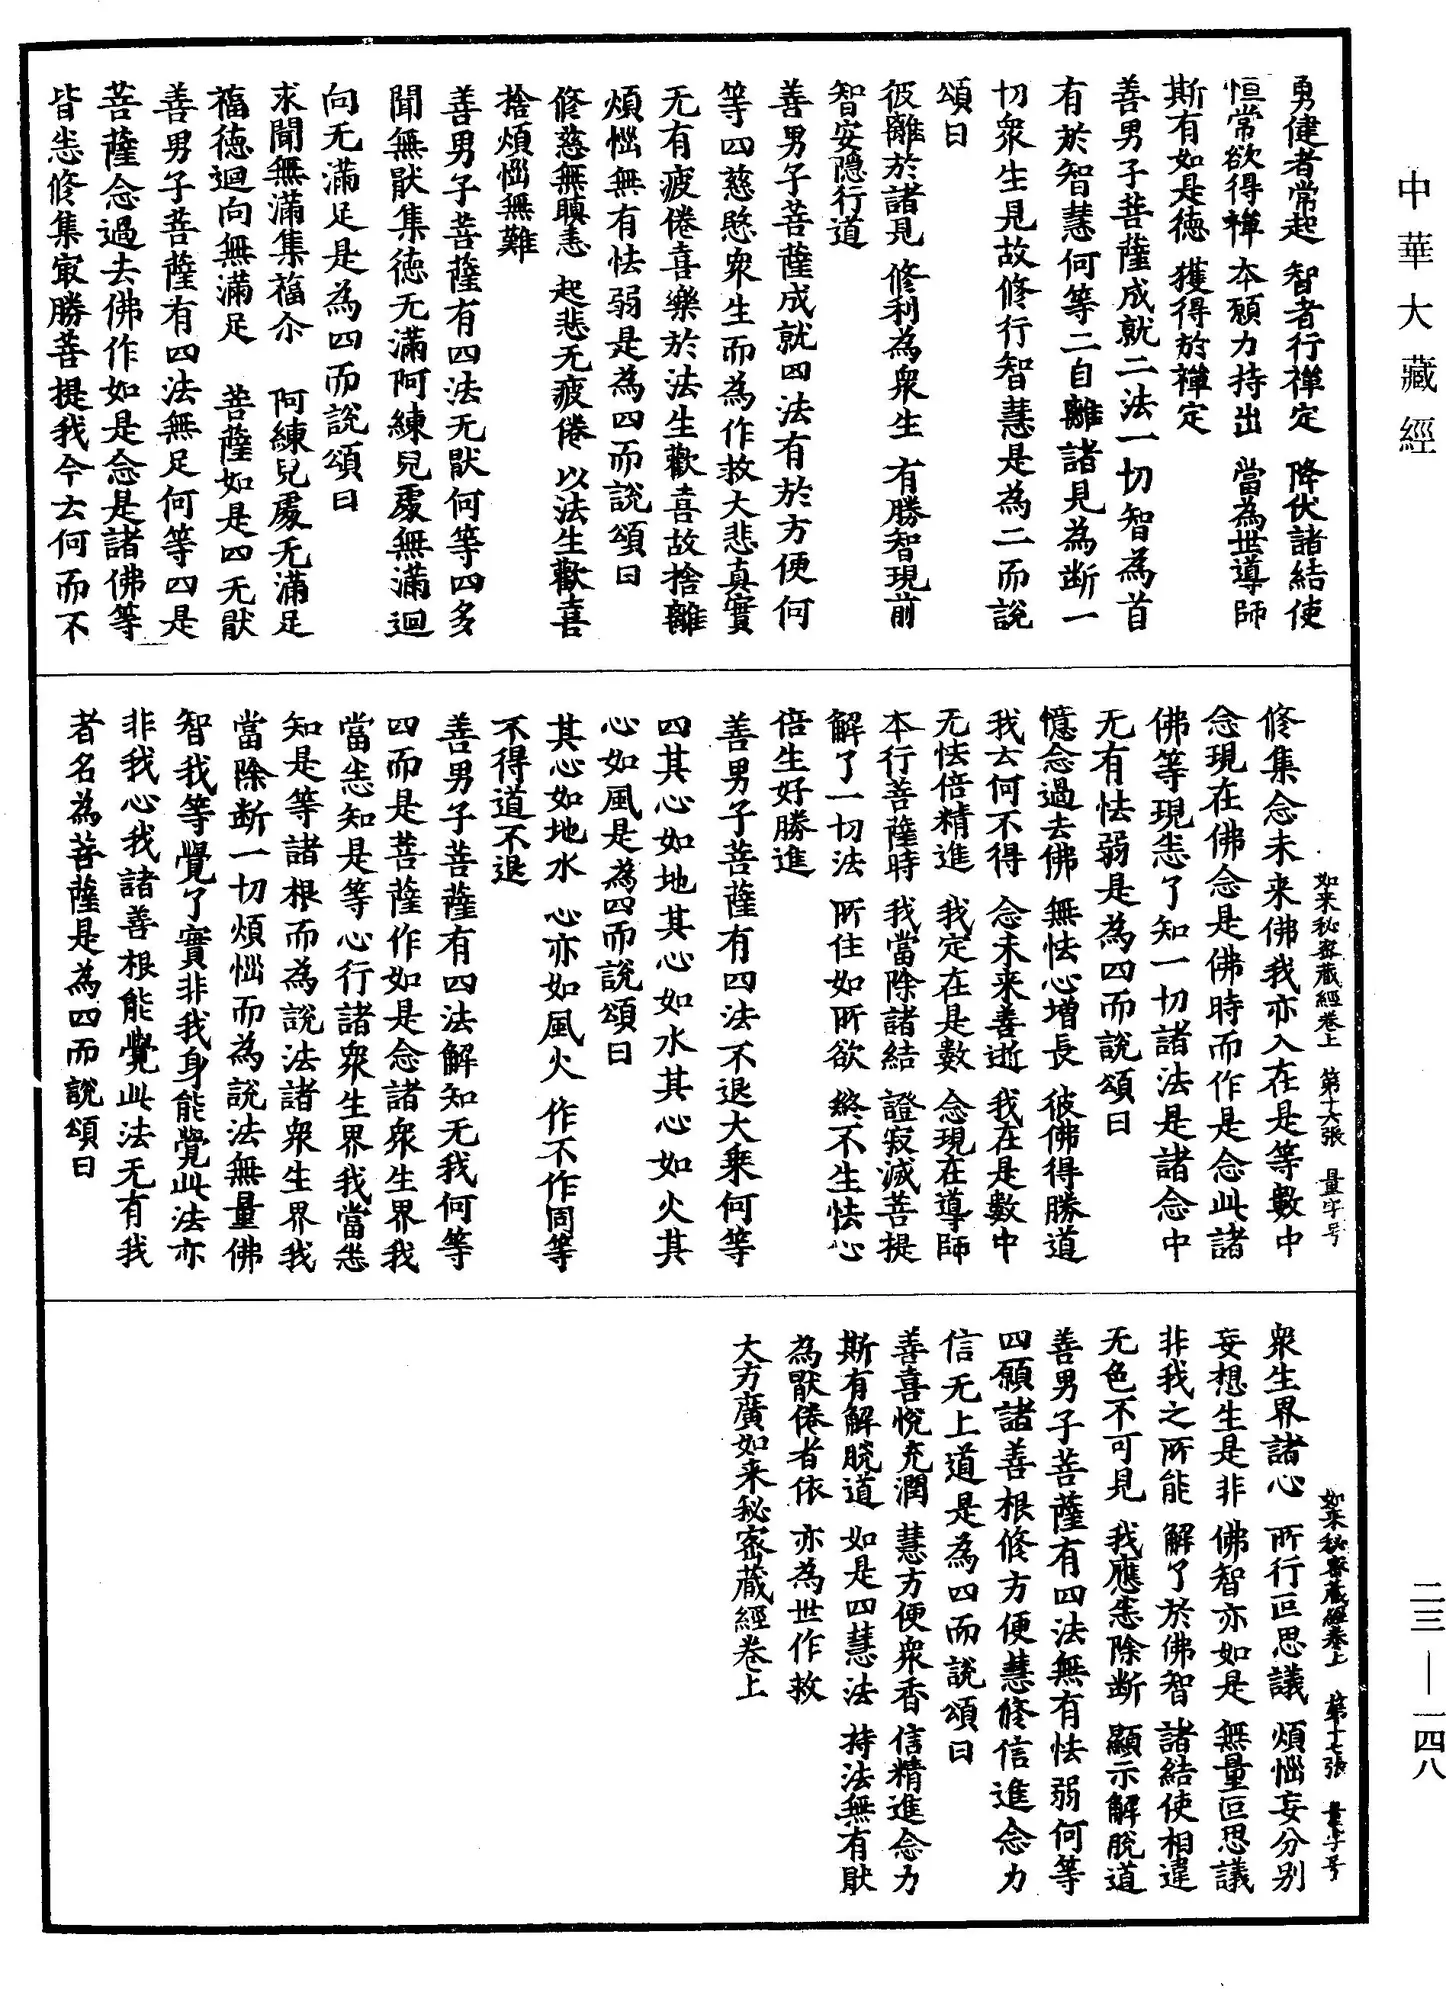 中華大藏經
勇健者常起 智者行禪定 降伏諸結使
恒常欲得禪 本願力持出 當為世導師
斯有如是德 獲得於禪定
善男子菩薩成就二法一切智為首
有於智慧何等二自離諸見為断一
切衆生見故修行智慧是為二而說
頌曰
彼離於諸見 修利為衆生 有勝智現前
智安隱行道
善男子菩薩成就四法有於方便何
等四慈愍衆生而為作救大悲真實
无有疲倦喜樂於法生歡喜故捨離
煩惱無有怯弱是為四而說頌曰
修慈無瞋恚 起悲无疲倦 以法生歡喜
捨煩惱無難
善男子菩薩有四法无猒何等四多
聞無猒集德无滿阿練兒處無滿迴
向无滿足是為四而說頌曰
求聞無滿集福尒 阿練兒處无滿足
福德迴向無滿足 菩薩如是四无猒
善男子菩薩有四法無足何等四是
菩薩念過去佛作如是念是諸佛等
皆悉修集㝡勝菩提我今云何而不
如来秘密藏經卷上 第十六張 量字号
修集念未来佛我亦入在是等數中
念現在佛念是佛時而作是念此諸
佛等現悉了知一切諸法是諸念中
无有怯弱是為四而說頌曰
憶念過去佛 無怯心增長 彼佛得勝道
我云何不得 念未来善逝 我在是數中
无怯倍精進 我定在是數 念現在導師
本行菩薩時 我當除諸結 證寂滅菩提
解了一切法 所住如所欲 終不生怯心
倍生好勝進
善男子菩薩有四法不退大乘何等
四其心如地其心如水其心如火其
心如風是為四而說頌曰
其心如地水 心亦如風火 作不作同等
不得道不退
善男子菩薩有四法解知无我何等
四而是菩薩作如是念諸衆生界我
當悉知是等心行諸衆生界我當悉
知是等諸根而為說法諸衆生界我
當除断一切煩惱而為說法無量佛
智我等覺了實非我身能覺此法亦
非我心我諸善根能覺此法无有我
者名為菩薩是為四而說頌曰
如来秘密藏經卷上 第十七張 量字号
衆生界諸心 所行叵思議 煩惱妄分别
妄想生是非 佛智亦如是 無量叵思議
非我之所能 解了於佛智 諸結使相違
无色不可見 我應悉除断 顯示解脫道
善男子菩薩有四法無有怯弱何等
四願諸善根修方便慧修信進念力
信无上道是為四而說頌曰
善喜悅充潤 慧方便衆香 信精進念力
斯有解脫道 如是四慧法 持法無有猒
為猒倦者依 亦為世作救
大方廣如来秘密藏經卷上
二三—一四八